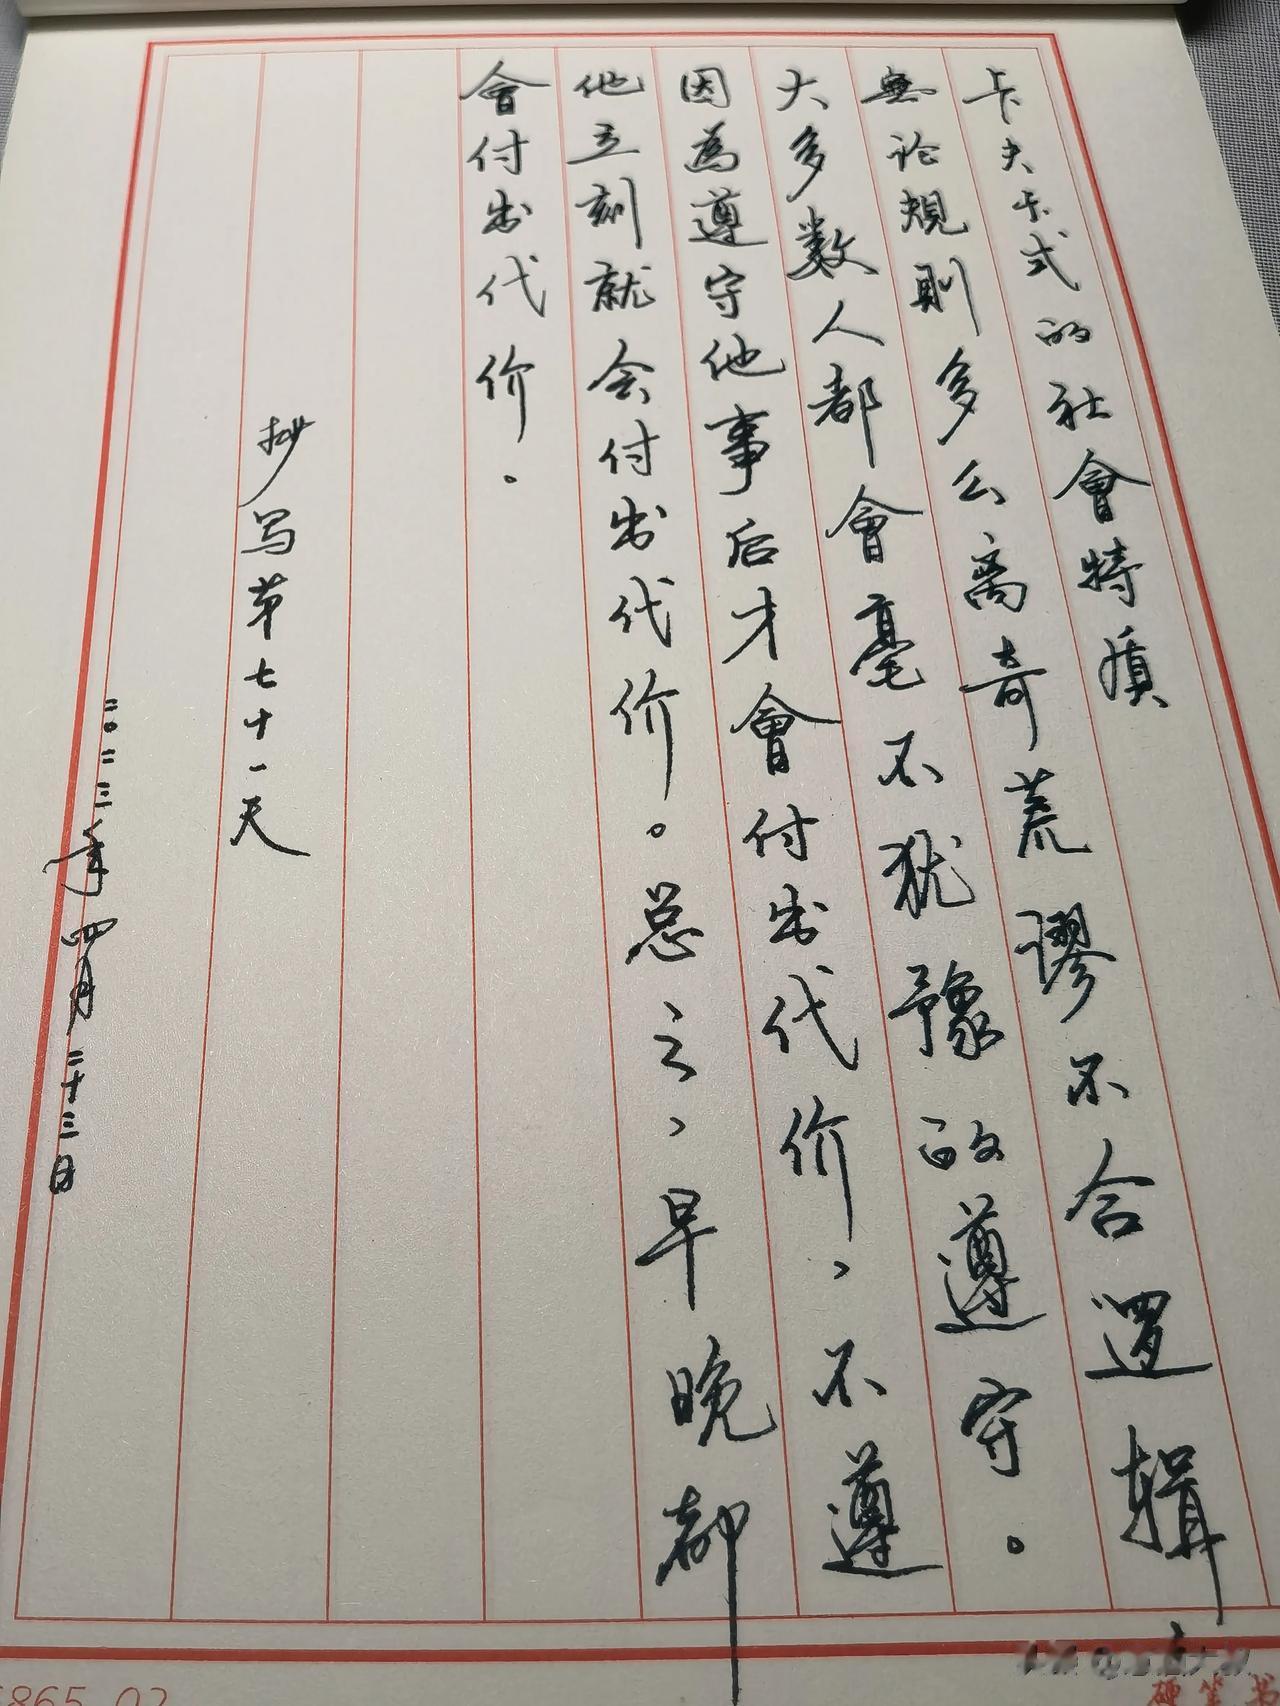 卡夫卡式的社會特质
無论規则多么离奇荒謬不合逻辑
大多数人都會毫不犹豫的遵守。
因為遵守他事后才會付出代价，不遵
他立刻就会付出代价。总之，早晚都
會付出代价。
抄写第七十一天
二〇二三年四月二十三日
5865.02
硬笔书